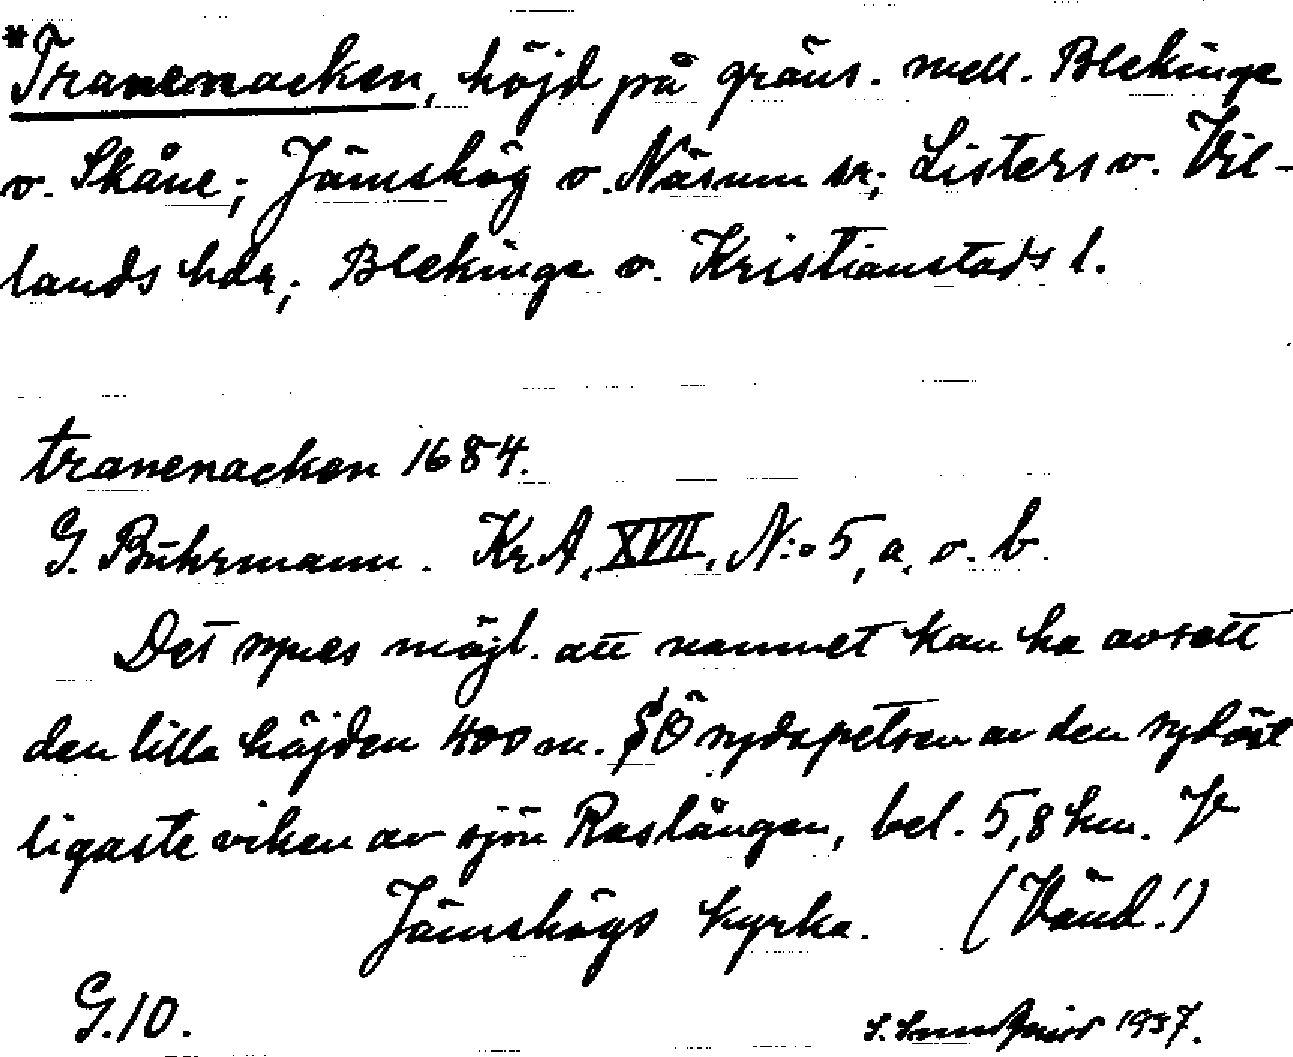 *Tranenacken, höjd på gräns. mell. Blekinge
o. Skåne; Jämshög o. Näsum sn; Listers o. Vil-
lands hdr; Blekinge o. Kristianstads l.
tranenacken 1684.
G. Buhrmann. KrA, XVII, N:o 5, a. o. b.
Det synes möjl. att namnet kan ha avsett
den lilla höjden 400 m. SÖ sydspetsen av den sydöst
ligaste viken av sjön Raslången, bel. 5,8 km.
Jämshögs kyrka. (Vänd!)
G.10.
1937.